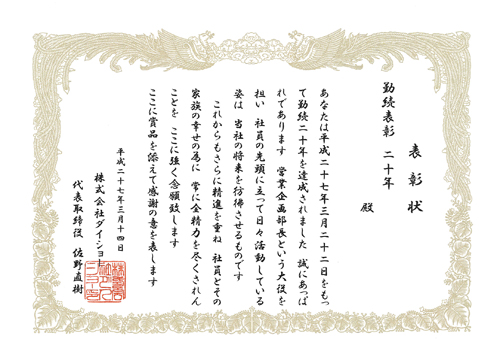 表彰状
勤続表彰 二十年
殿
あなたは平成二十七年三月二十二日をもっ
て勤続二十年を達成されました 誠にあっぱ
れであります 営業企画部長という大役を
担い 社員の先頭に立って日々活動している
姿は 当社の将来を彷彿させるものです
これからもさらに精進を重ね 社員とその
家族の幸せの為に 常に全精力を尽くされん
ことを ここに強く念願致します
ここに賞品を添えて感謝の意を表します
平成二十七年三月十四日
株式会社ダイショー
代表取締役 佐野直樹